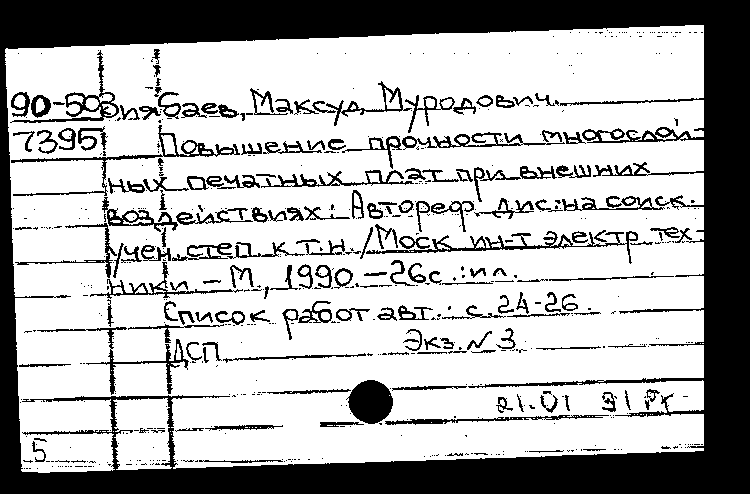 90-50 Зиябаев, Максуд Муродович.
7395 Повышение прочности многослой-
ных печатных плат при внешних
воздействиях: Автореф. дис. на соиск.
учен. степ. к.т.н. / Моск ин-т электр. тех-
ники. – М., 1990. – 26с.: ил.
Список работ авт.: с. 24-26.
ДСП Экз. N 3
21.01 91
5